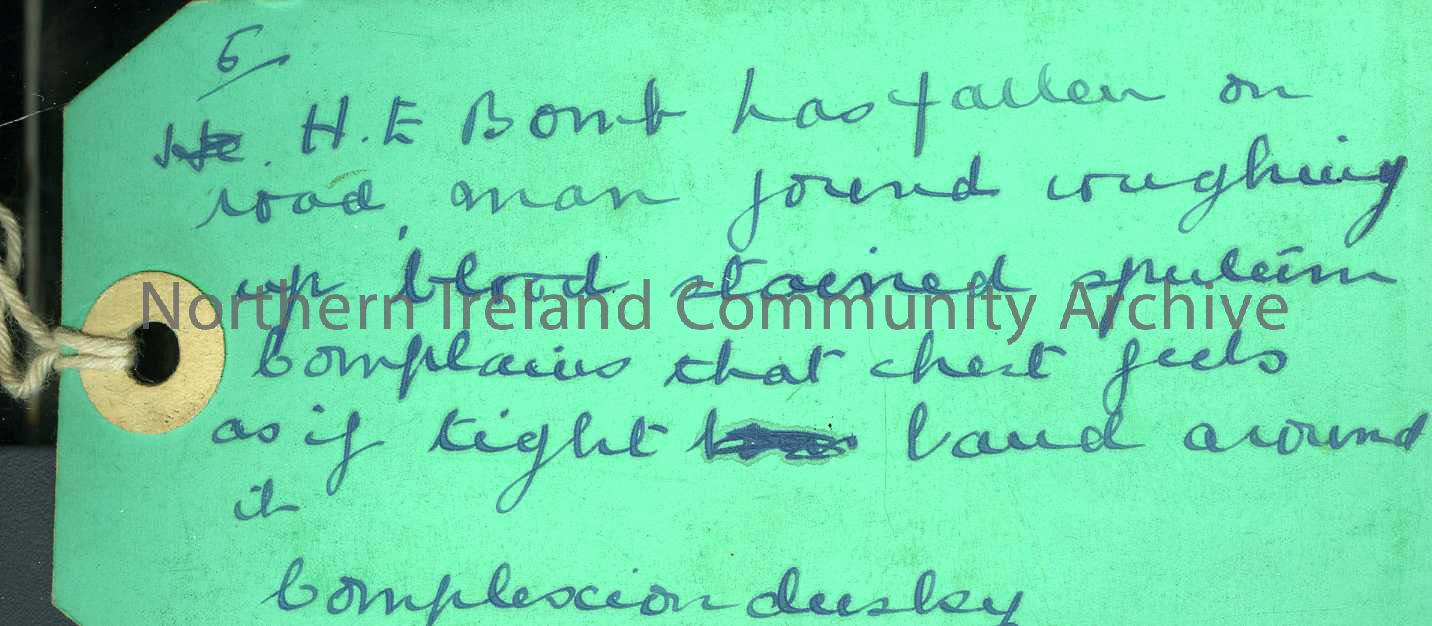 5
H.E Bomb has fallen on
road, man found coughing
up blood stained sputum
Northern Ireland Community Archive
Complains that chest feels
as if tight band around
it
Complexion dusky